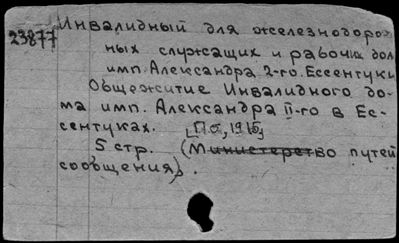 Инвалидный для железнодорож-
23877
ных служащих и рабочих дом
имп. Александра 2-го. Ессентуки
Общежитие Инвалидного до-
ма имп. Александра II-го в Ес-
сентуках. [Пб, 1915]
5 стр. (Министерство путей
сообщения).